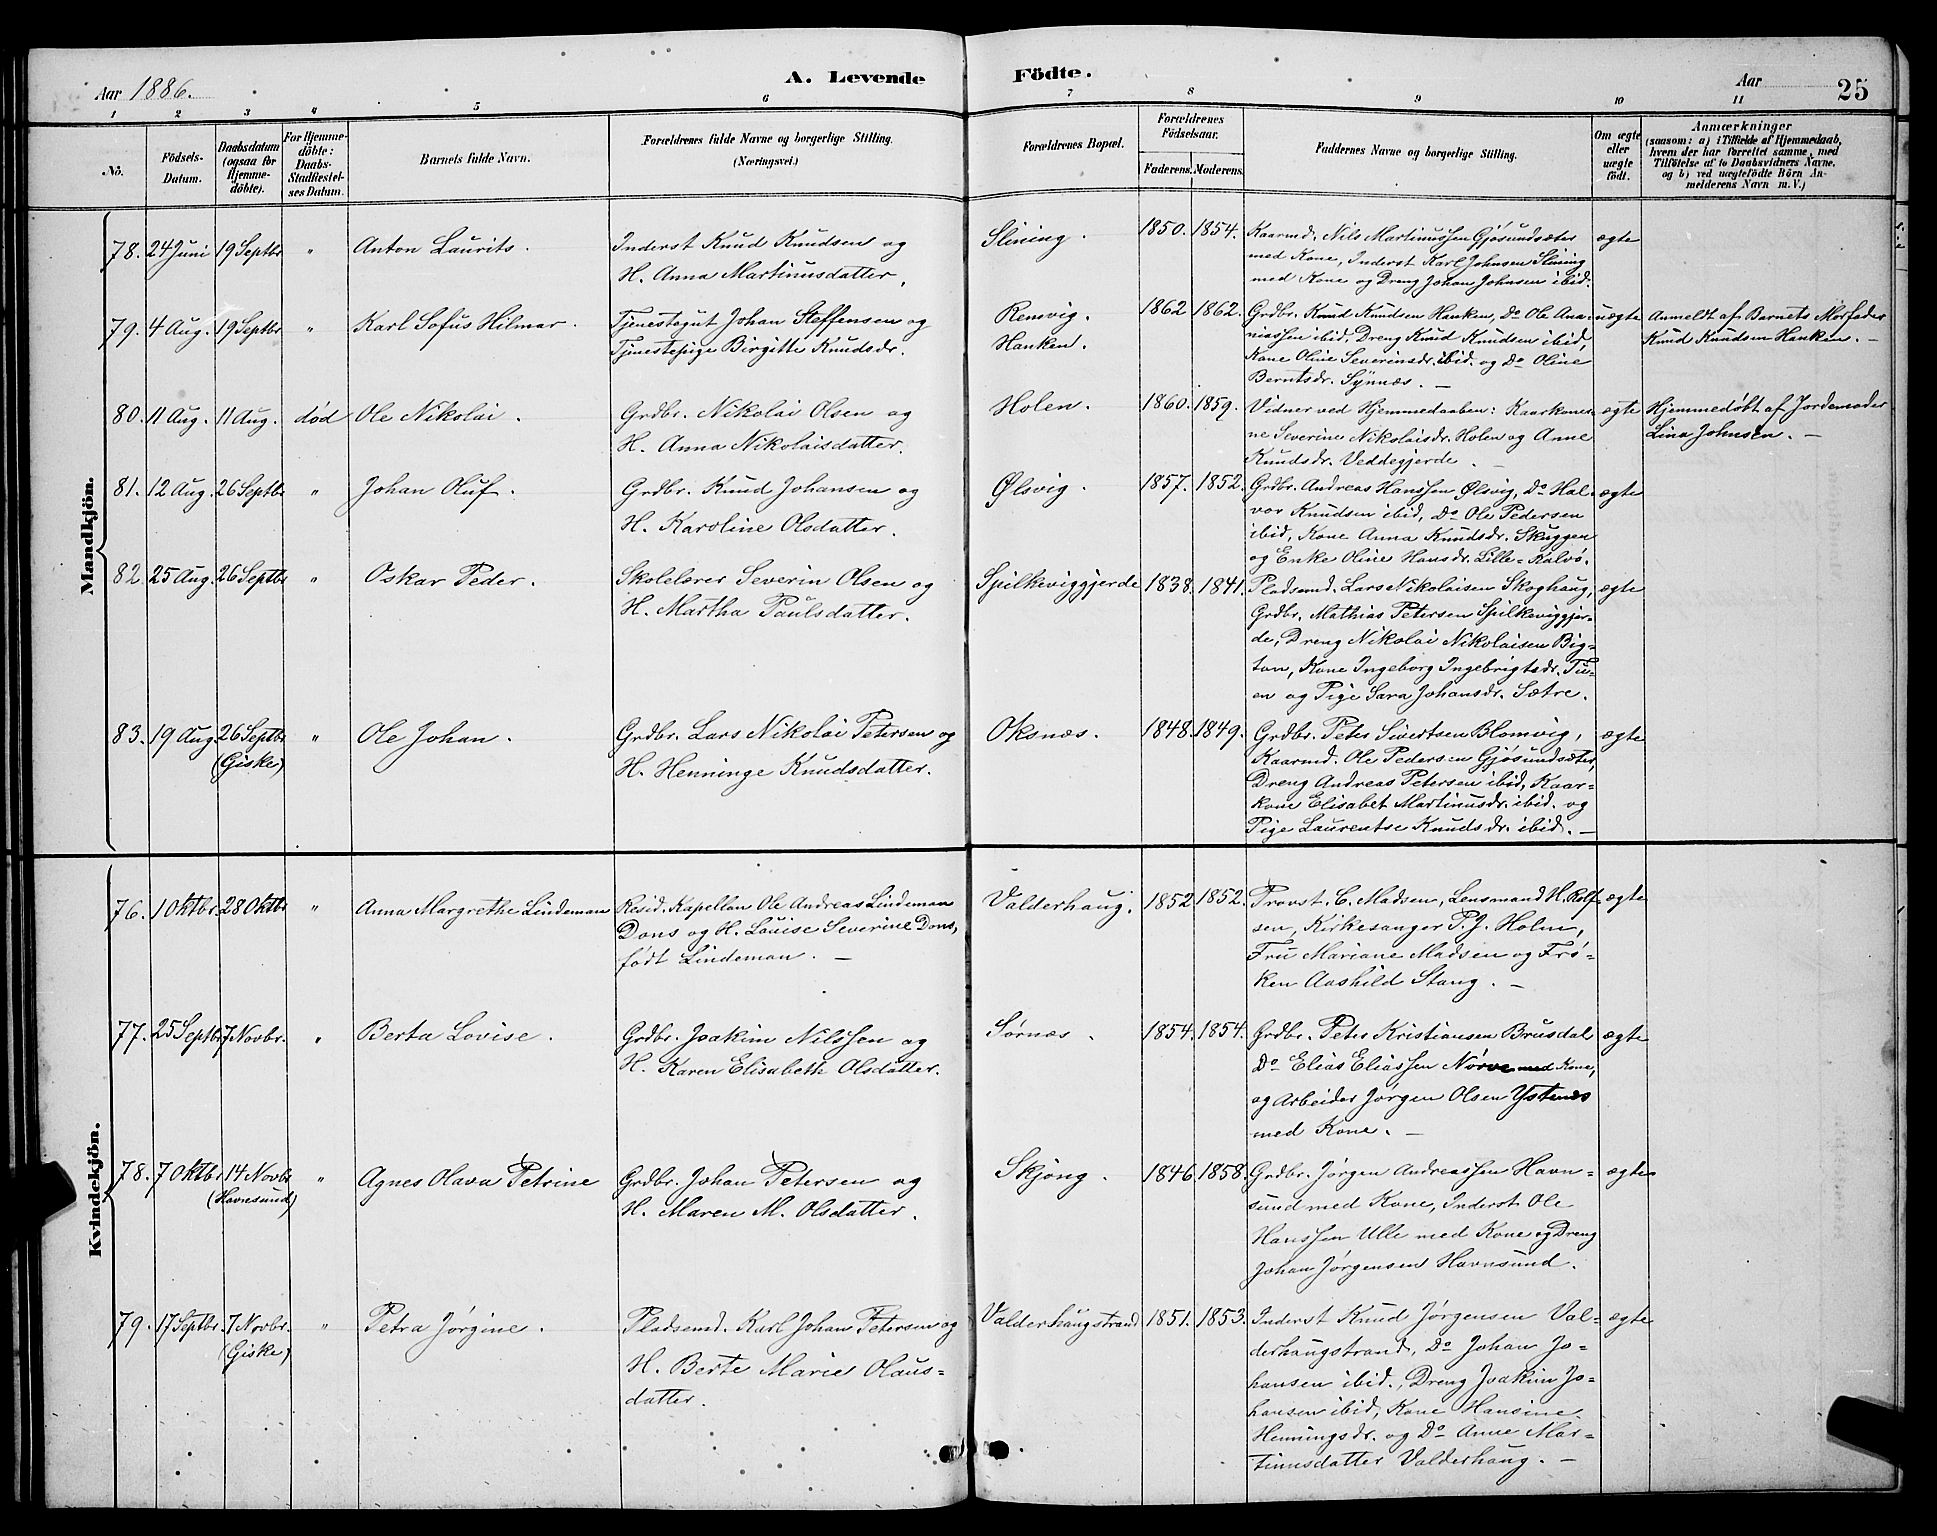 Aar 1886.
A. Levende
Födte.
Aar
25
1 2 3 4 5 6 7 8 9 10 11
No.
Födsels-Datum.
Daabsdatum (ogsaa for Hjemme-döbte).
For Hjemme-döbte: Daabs-Stadfæstel-ses Datum.
Barnets fulde Navn.
Forældrenes fulde Navne og borgerlige Stilling.
(Næringsvei.)
Forældrenes Bopæl.
Forældrenes Födselsaar.
Faderens. Moderens.
Faddernes Navne og borgerlige Stilling.
Om ægte eller uægte födt.
Anmærkninger
(saasom: a) i Tilfælde af Hjemmedaab,
hvem der har forrettet samme, med
Tilföielse af to Daabsvidners Navne,
og b) ved uægtefödte Börn An-
melderens Navn m. V.)
Mandkjön.
78. 24 Juni 19 Septbr " Anton Laurits.
Inderst Knud Knudsen og
H. Anna Martinusdatter.
Slining.
1850. 1854.
Kaarmd. Nils Martinussen Gjøsundsæter
med Kone, Inderst Karl Johnsen Slining
med Kone og Dreng Johan Johnsen ibid.
ægte
79. 4 Aug. 19 Septbr " Karl Sofus Hilmar.
Tjenestegut Johan Steffensen og
Tjenestepige Birgitte Knudsdr.
Rensvig.
Hanken.
1862 1862.
Grdbr. Knud Knudsen Hanken, Do Ole Ana-
niassen ibid, Dreng Knud Knudsen ibid,
Kone Oline Severinsdr. ibid. og Do Oline
Berntsdr. Synnæs. —
uægte
Anmeldt af Barnets Morfader
Knud Knudsen Hanken. —
80. 11 Aug. 11 Aug. død Ole Nikolai.
Grdbr. Nikolai Olsen og
H. Anna Nikolaisdatter.
Holen.
1860. 1859.
Vidner ved Hjemmedaaben: Kaarkoner-
ne Severine Nikolaisdr. Holen og Anne
Knudsdr. Veddegjerde. —
ægte
Hjemmedøbt af Jordemoder
Lina Johnsen. —
81. 12 Aug. 26 Septbr " Johan Oluf.
Grdbr. Knud Johansen og
H. Karoline Olsdatter.
Ølsvig.
1857. 1852.
Grdbr. Andreas Hanssen Ølsvig, Do Hal-
vor Knudsen ibid, Do Ole Pedersen
ibid, Kone Anna Knudsdr. Skuggen
og Enke Oline Hansdr. Lille-Kalvø.
ægte
82. 25 Aug. 26 Septbr " Oskar Peder.
Skolelærer Severin Olsen og
H. Martha Paulsdatter.
Spilkeviggjerde
1838. 1841.
Pladsmd. Lars Nikolaisen Skoghaug,
Grdbr. Mathias Petersen Spilkeviggjer-
de, Dreng Nikolai Nikolaisen Big-
tan, Kone Ingeborg Ingebrigtsdr. Tu-
en og Pige Sara Johansdr. Sætre.
ægte
83. 19 Aug. 26 Septbr (Giske) " Ole Johan.
Grdbr. Lars Nikolai Petersen og
H. Henninge Knudsdatter.
Oksnæs.
1848. 1849.
Grdbr. Peter Sivertsen Blomvig,
Kaarmd. Ole Pedersen Gjøsundsæter,
Dreng Andreas Petersen ibid, Kaar-
kone Elisabet Martinusdr. ibid. og
Pige Laurentse Knudsdr. ibid. —
ægte
Kvindekjön.
76. 1 Oktbr. 28 Oktbr " Anna Margrethe Lindeman
Resid. Kapellan Ole Andreas Lindeman
Dons og H. Louise Severine Dons,
født Lindeman. —
Valderhaug.
1852 1852.
Provst. C. Madsen, Lensmand H. Rolf-
sen, Kirkesanger P. J. Holm,
Fru Mariane Madsen og Frø-
ken Aashild Stang. —
ægte
77. 25 Septbr. 7 Novbr. " Berta Lovise.
Grdbr. Joakim Nilssen og
H. Karen Elisabeth Olsdatter.
Sørnæs.
1854. 1854.
Grdbr. Peter Kristiansen Brusdal
Do Elias Eliassen Nørve med Kone,
og Arbeider Jørgen Olsen Ystenes
med Kone. —
ægte
78. 7 Oktbr 14 Novbr (Havnsund) " Agnes Olava Petrine
Grdbr. Johan Petersen og
H. Maren M. Olsdatter.
Skjong.
1846 1858.
Grdbr. Jørgen Andreassen Havn-
sund med Kone, Inderst Ole
Hanssen Ulle med Kone og Dreng
Johan Jørgensen Havnsund.
ægte
79. 17 Septbr. 7 Novbr. (Giske) " Petra Jørgine.
Pladsemd. Karl Johan Petersen og
H. Berte Marie Olaus-
datter.
Valderhaugstrand
1851. 1853.
Inderst Knud Jørgensen Val-
derhaugstrand, Do Johan Jo-
hansen ibid., Dreng Joakim Jo-
hansen ibid, Kone Hansine
Henningsdr. og Do Anne Mar-
tinusdatter Valderhaug. —
ægte